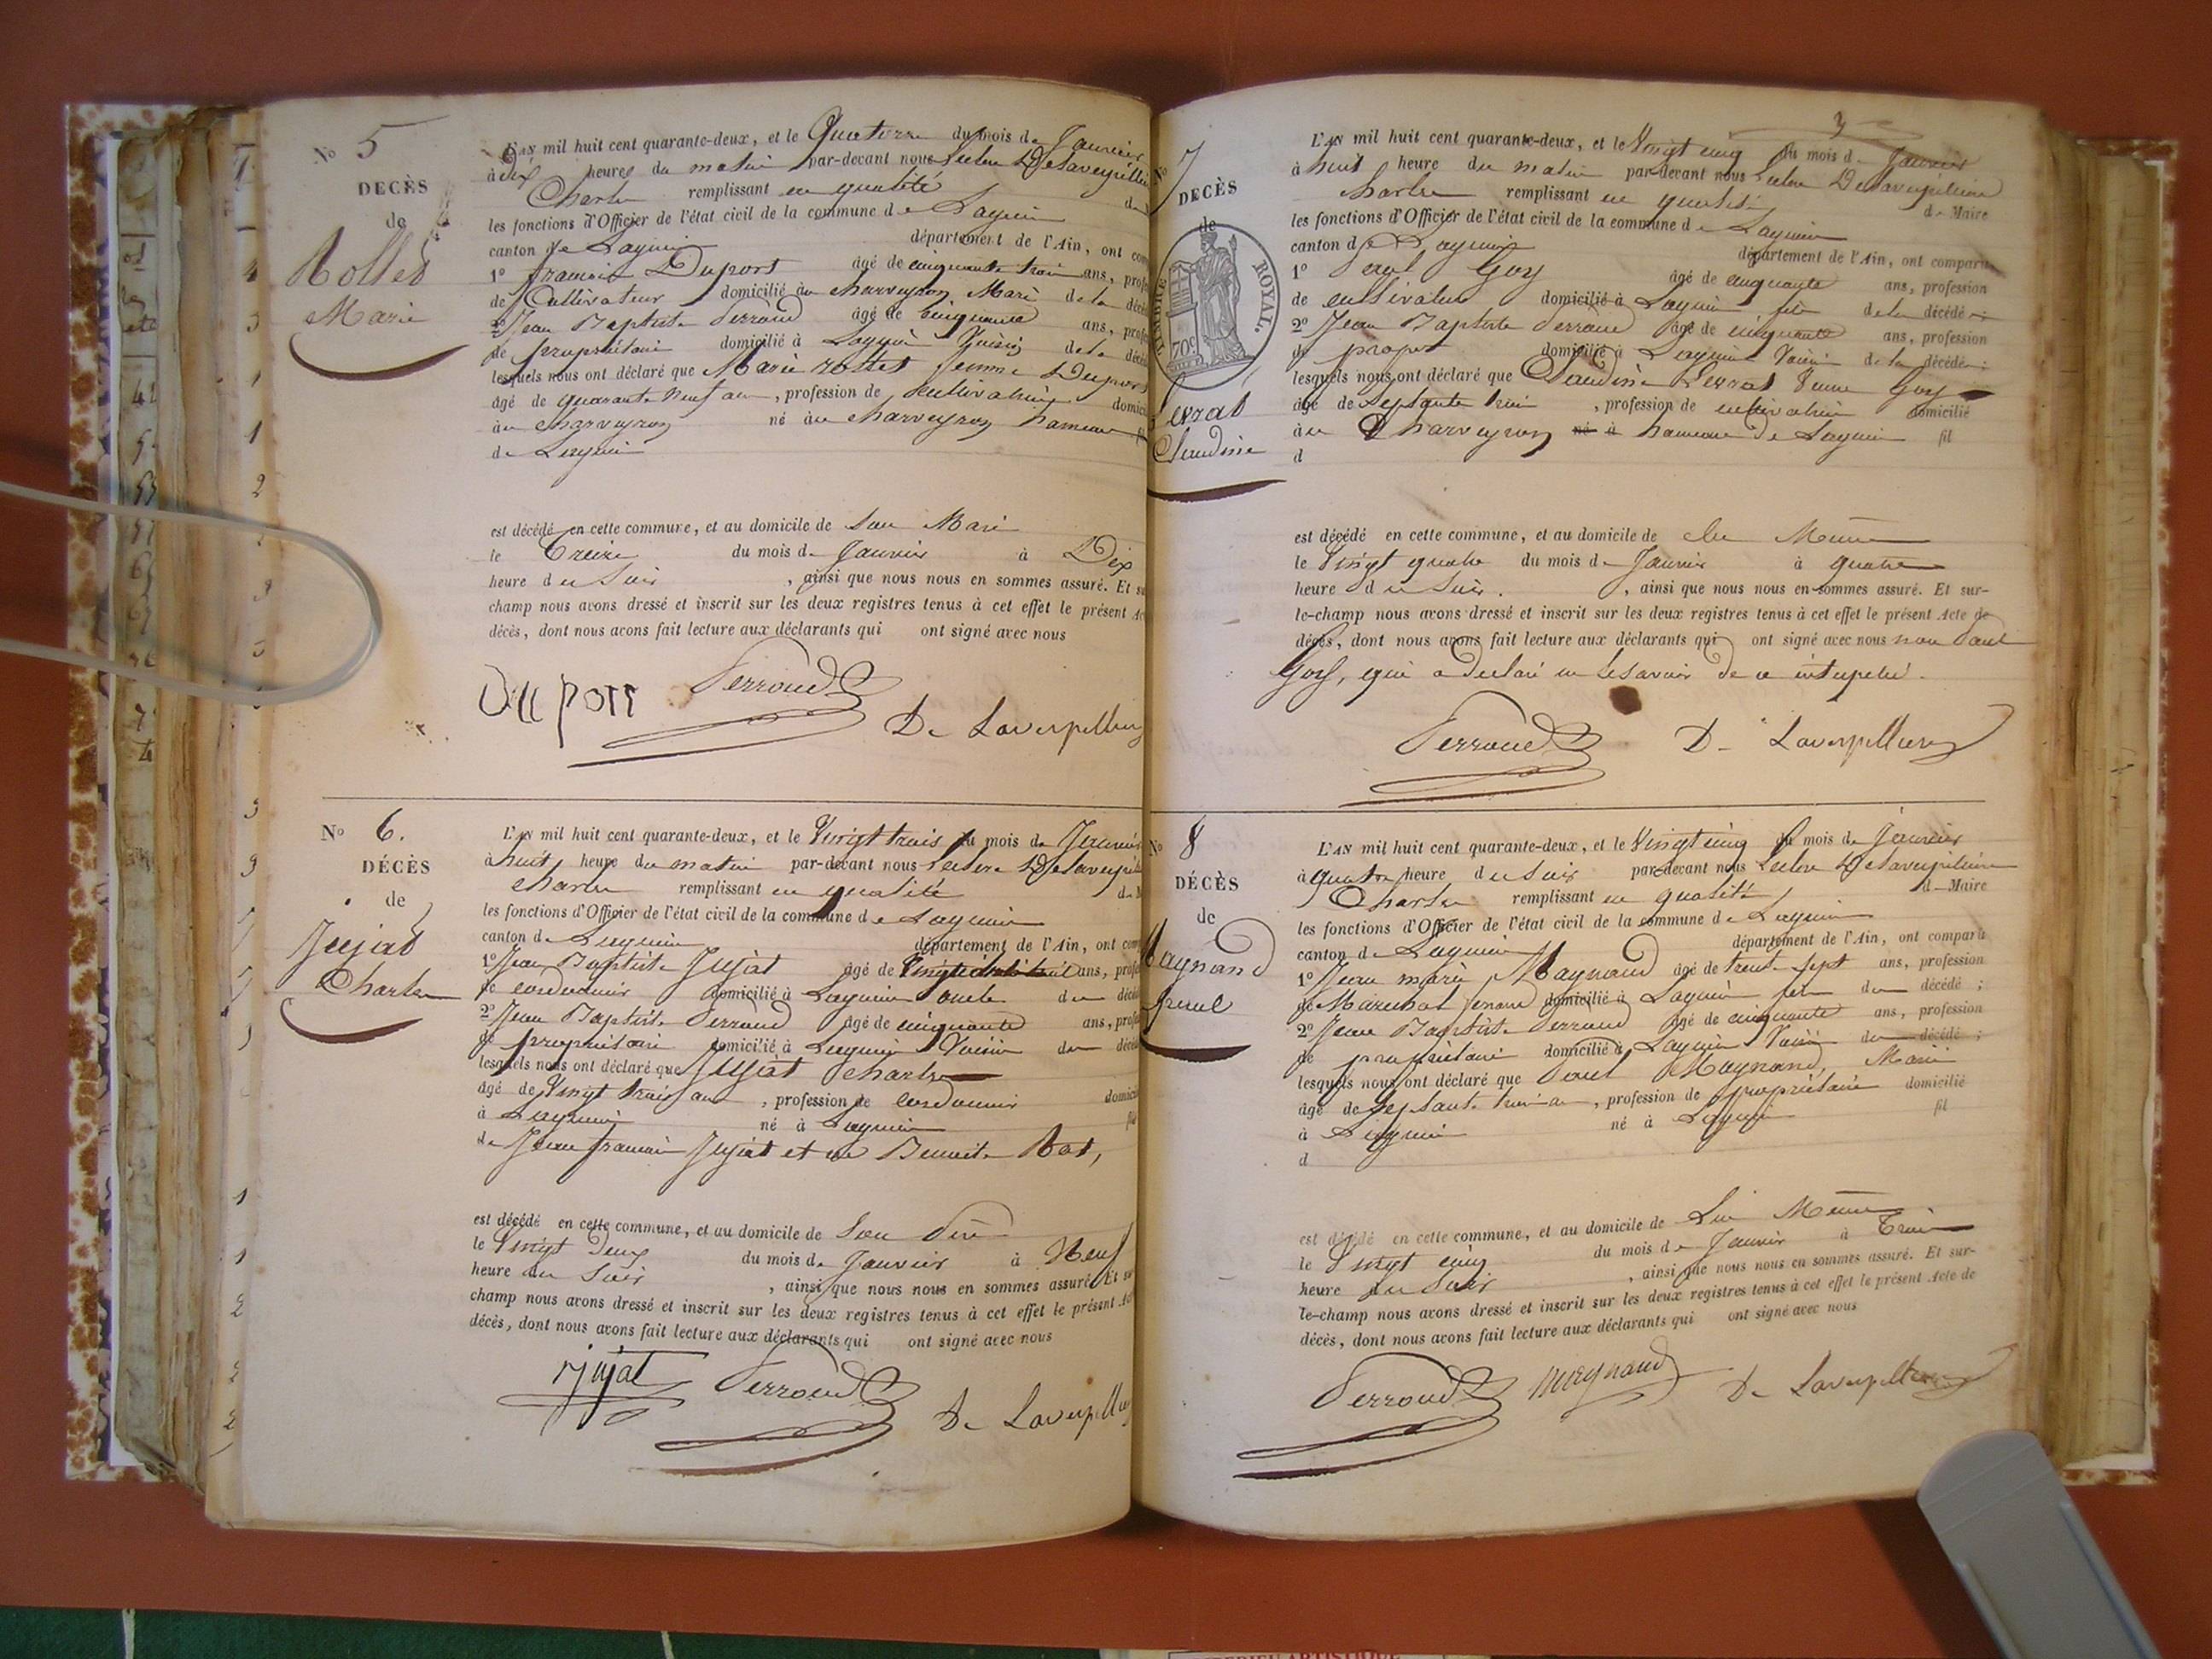 N° 5
DECÈS
de
Rollet
Marie
L'AN mil huit cent quarante-deux, et le Quatorze du mois de Janvier
à dix heures du matin par-devant nous
Charles remplissant en qualité d
les fonctions d'Officier de l'état civil de la commune de Lagnieu
canton de Lagnieu département de l'Ain, ont com
1° françois Duport âgé de cinquante trois ans, profe
de Cultivateur domicilié au charveyron Mari de la décé
2° Jean Baptiste Perroud âgé de cinquante ans, profe
de propriétaire domicilié à Lagnieu Voisin de la décé
lesquels nous ont déclaré que Marie rollet femme Duport
âgé de quarante neuf ans, profession de cultivatrice domici
au charveyron né au charveyron hameau
de Lagnieu
est décédé en cette commune, et au domicile de Son Mari
le Treize du mois de Janvier à Dix
heure du Soir, ainsi que nous nous en sommes assuré. Et su
champ nous avons dressé et inscrit sur les deux registres tenus à cet effet le présent Ac
décès, dont nous avons fait lecture aux déclarants qui ont signé avec nous
Duport Perroud De Laverpillière
N° 6.
DÉCÈS
de
Jujat
Charles
L'AN mil huit cent quarante-deux, et le Vingt trois du mois de Janvier
à huit heure du matin par-devant nous
Charles remplissant en qualité d
les fonctions d'Officier de l'état civil de la commune de Lagnieu
canton de Lagnieu département de l'Ain, ont com
1° Jean Baptiste Jujat âgé de ans, profe
de cordonnier domicilié à Lagnieu oncle du décé
2° Jean Baptiste Perroud âgé de cinquante ans, profe
de propriétaire domicilié à Lagnieu Voisin du décé
lesquels nous ont déclaré que Jujat Charles
âgé de Vingt trois ans, profession de cordonnier domici
à Lagnieu né à Lagnieu fil
de Jean françois Jujat et de Benoite Rat,
est décédé en cette commune, et au domicile de Son Père
le Vingt Deux du mois de Janvier à Neuf
heure du Soir, ainsi que nous nous en sommes assuré. Et su
champ nous avons dressé et inscrit sur les deux registres tenus à cet effet le présent Ac
décès, dont nous avons fait lecture aux déclarants qui ont signé avec nous
Jujat Perroud De Laverpillière
3
N° 7
DECÈS
de
TIMBRE ROYAL.
70c
Claudine
L'AN mil huit cent quarante-deux, et le Vingt cinq du mois de Janvier
à huit heure du matin par-devant nous
Charles remplissant en qualité de Maire
les fonctions d'Officier de l'état civil de la commune de Lagnieu
canton de Lagnieu département de l'Ain, ont comparu
1° Paul Goy âgé de cinquante ans, profession
de cultivateur domicilié à Lagnieu fils de la décédée;
2° Jean Baptiste Perroud âgé de cinquante ans, profession
de propre domicilié à Lagnieu Voisin de la décédée;
lesquels nous ont déclaré que Claudine Veuve Goy
âgé de Septante trois, profession de cultivatrice domicilié
au Charveyron né à hameau de Lagnieu fil
d
est décédé en cette commune, et au domicile de elle Même
le Vingt quatre du mois de Janvier à quatre
heure du Soir., ainsi que nous nous en sommes assuré. Et sur-
le-champ nous avons dressé et inscrit sur les deux registres tenus à cet effet le présent Acte de
décès, dont nous avons fait lecture aux déclarants qui ont signé avec nous non Paul
Goy, qui a déclaré ne le savoir de ce interpelé.
Perroud De Laverpillière
N° 8
DÉCÈS
de
Maynand
paul
L'AN mil huit cent quarante-deux, et le Vingt cinq du mois de Janvier
à quatre heure du soir par-devant nous
Charles remplissant en qualité de Maire
les fonctions d'Officier de l'état civil de la commune de Lagnieu
canton de Lagnieu département de l'Ain, ont comparu
1° Jean marie Maynand âgé de trente sept ans, profession
de Marechal ferrant domicilié à Lagnieu fils du décédé;
2° Jean Baptiste Perroud âgé de cinquante ans, profession
de propriétaire domicilié à Lagnieu Voisin du décédé;
lesquels nous ont déclaré que Paul Maynand, Marié
âgé de Septante trois ans, profession de propriétaire domicilié
à Lagnieu né à Lagnieu fil
d
est décédé en cette commune, et au domicile de Lui Même
le Vingt cinq du mois de Janvier à Trois
heure du Soir, ainsi que nous nous en sommes assuré. Et sur-
le-champ nous avons dressé et inscrit sur les deux registres tenus à cet effet le présent Acte de
décès, dont nous avons fait lecture aux déclarants qui ont signé avec nous
Perroud Maynand De Laverpillière